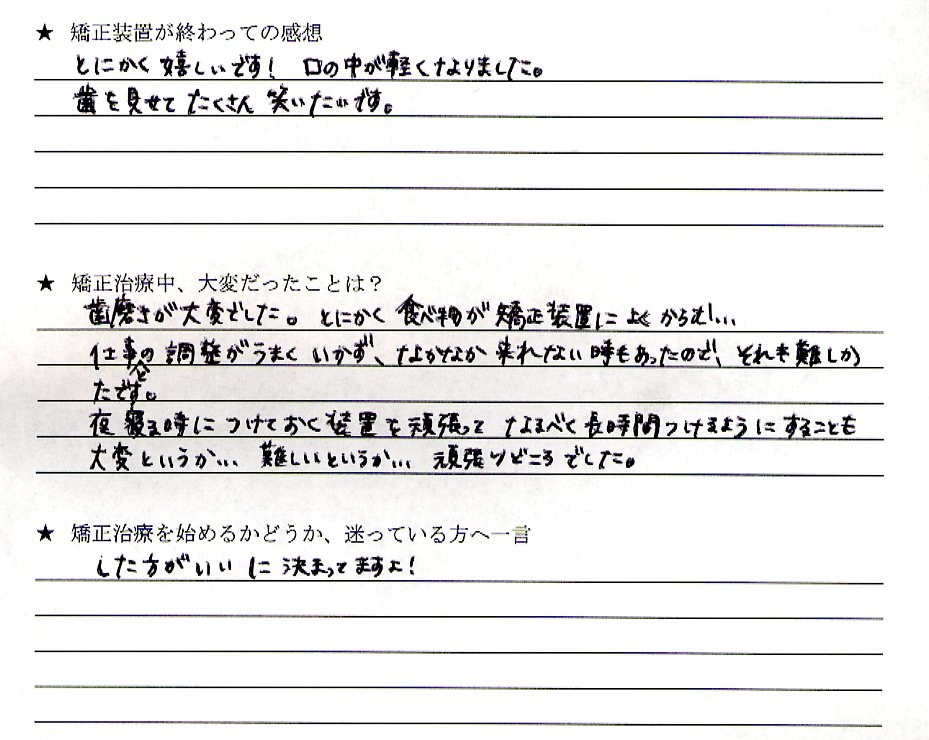 ★ 矯正装置が終わっての感想
とにかく嬉しいです！ 口の中が軽くなりました。
歯を見せてたくさん笑いたいです。
★ 矯正治療中、大変だったことは？
歯磨きが大変でした。とにかく食べ物が矯正装置によくからむし...
仕事との調整がうまくいかず、なかなか来れない時もあったので、それも難しか
たです。
夜寝る時につけておく装置を頑張ってなるべく長時間つけるようにすることも
大変というか... 難しいというか... 頑張りどころでした。
★ 矯正治療を始めるかどうか、迷っている方へ一言
した方がいいに決まってますよ！